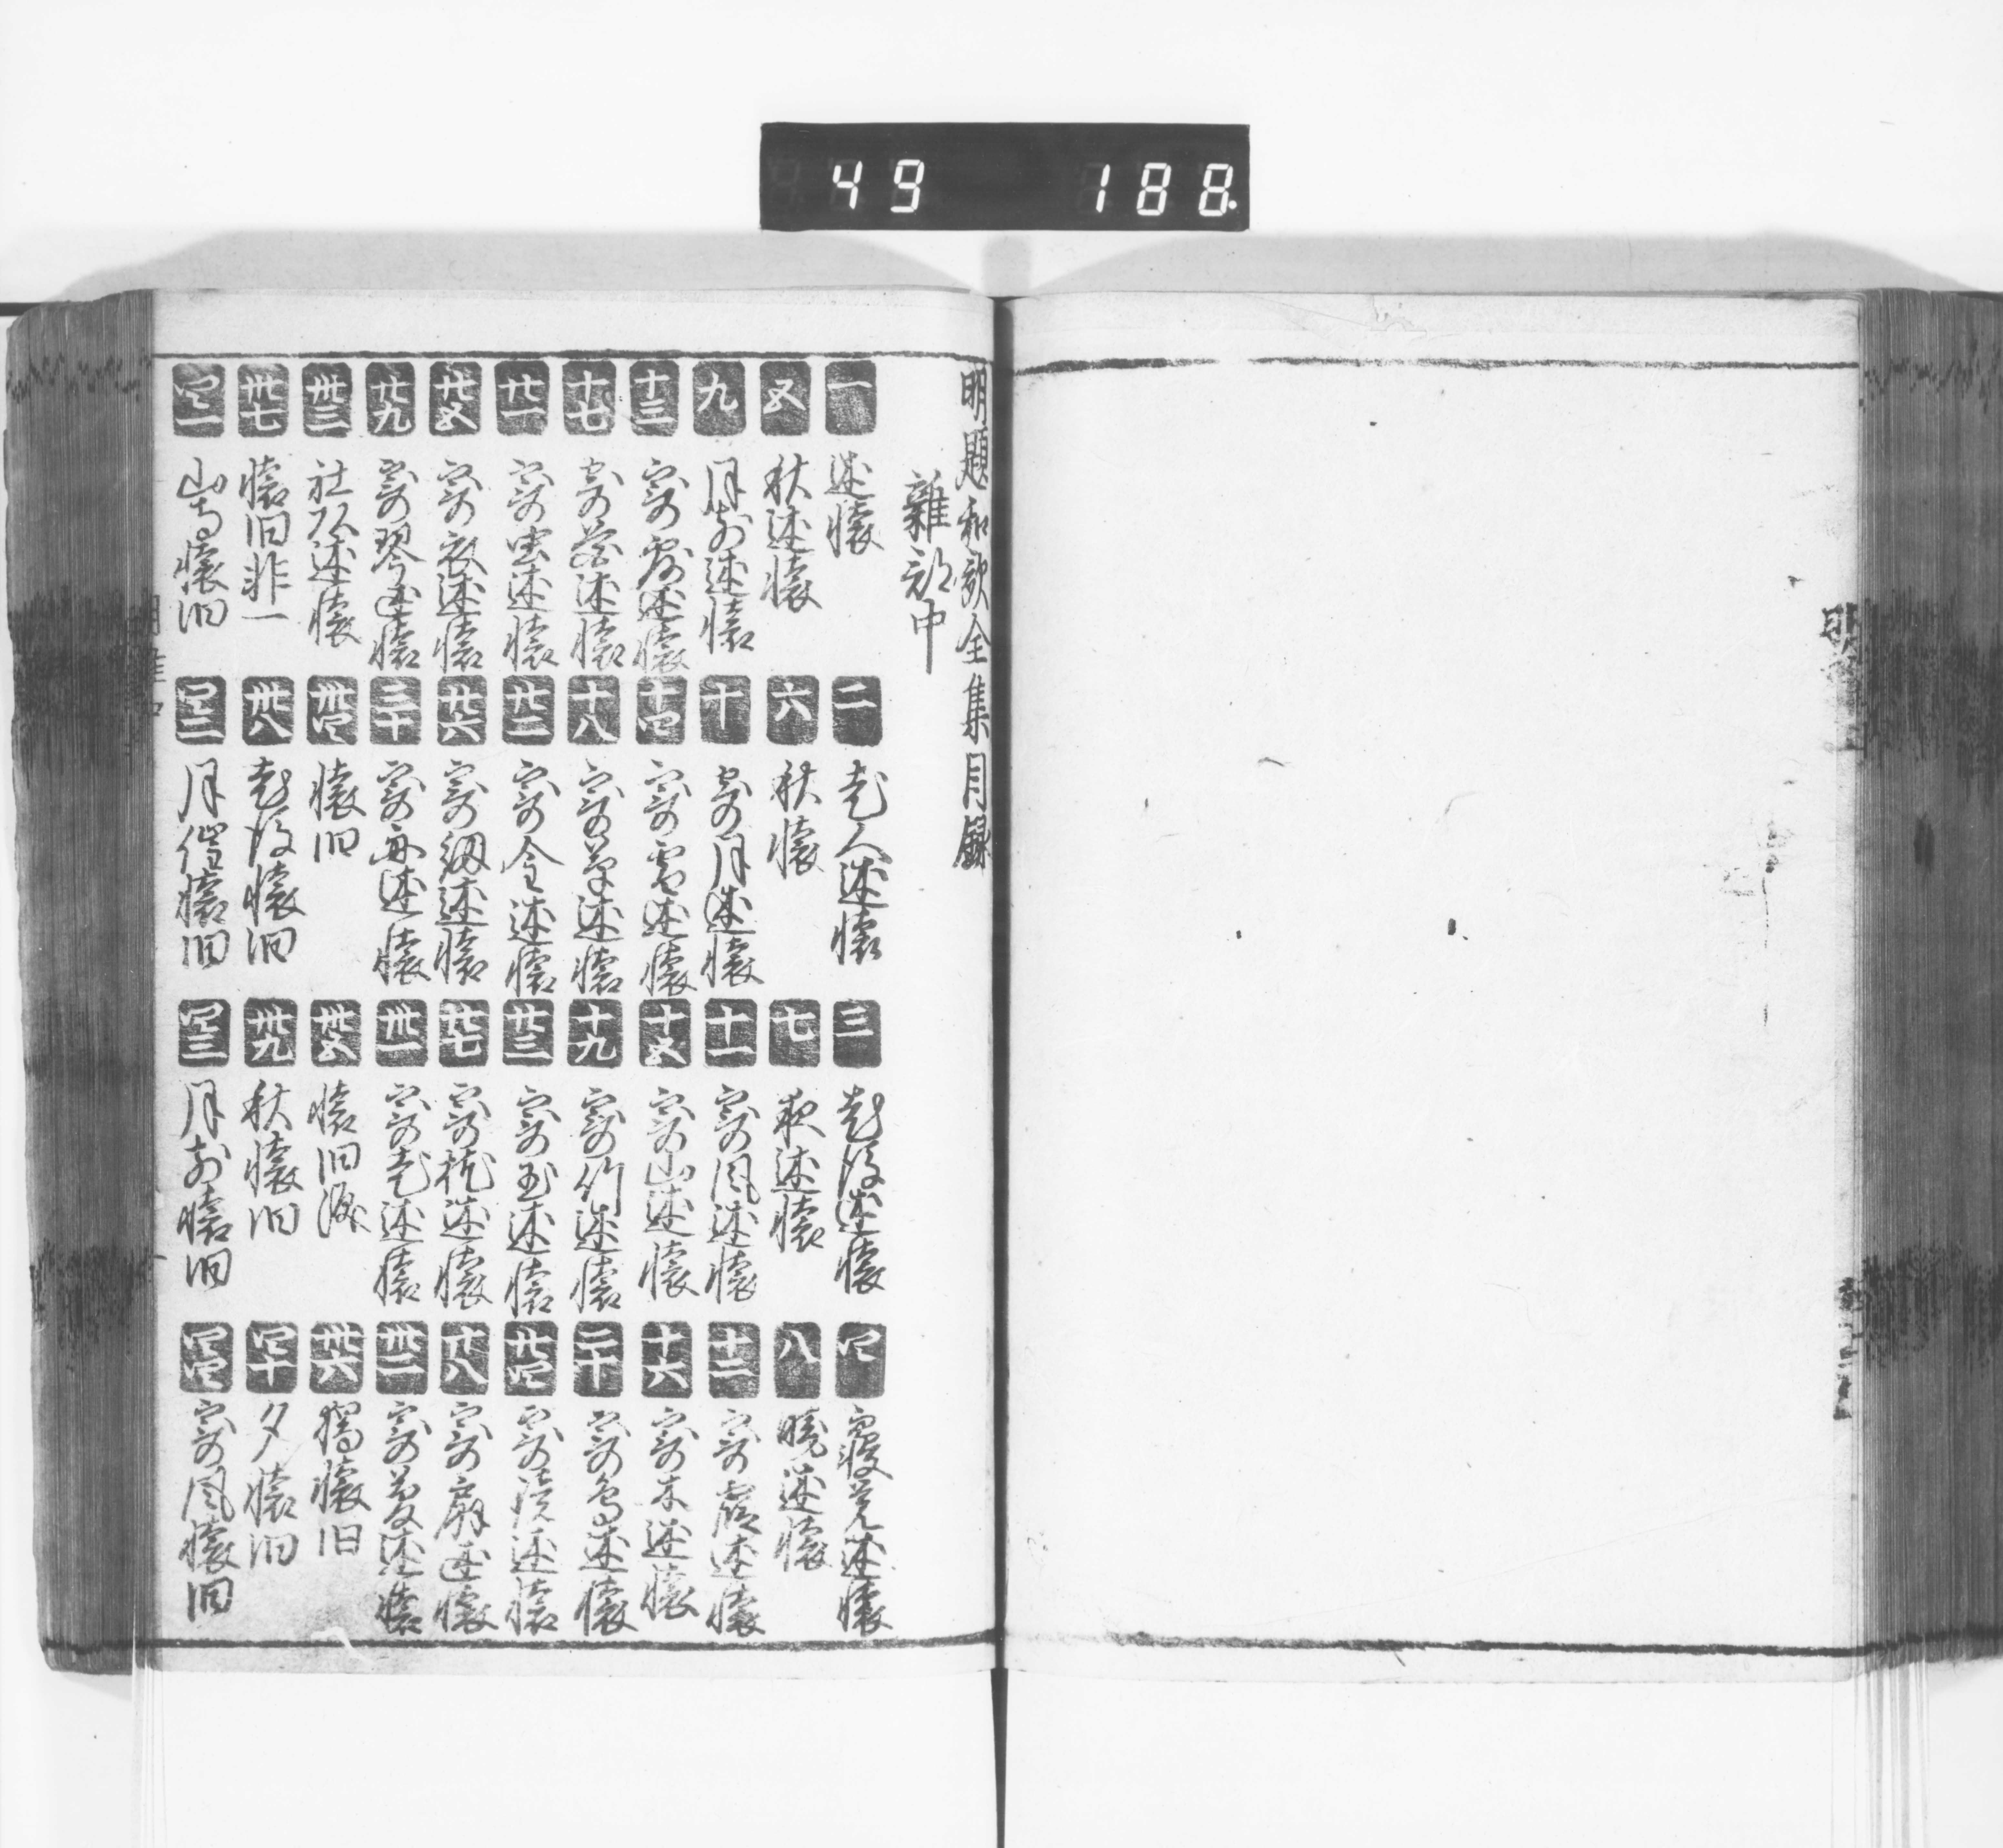 49 188
明題和歌全集目録
雑部中
一 述懐 二 老人述懐 三 老後述懐 四 寝覚述懐
五 秋述懐 六 秋懐 七 夜述懐 八 暁述懐
九 月前述懐 十 寄月述懐 十一 寄風述懐 十二 寄露述懐
十三 寄霧述懐 十四 寄雲述懐 十五 寄山述懐 十六 寄木述懐
十七 寄苔述懐 十八 寄草述懐 十九 寄竹述懐 二十 寄鳥述懐
廿一 寄虫述懐 廿二 寄金述懐 廿三 寄玉述懐 廿四 寄述懐
廿五 寄衣述懐 廿六 寄述懐 廿七 寄枕述懐 廿八 寄扇述懐
廿九 寄琴述懐 三十 寄舟述懐 卅一 寄老述懐 卅二 寄夢述懐
卅三 社頭述懐 卅四 懐旧 卅五 懐旧涙 卅六 独懐旧
卅七 懐旧非一 卅八 老後懐旧 卅九 秋懐旧 四十 夕懐旧
四一 山寺懐旧 四二 月催懐旧 四三 月前懐旧 四四 寄風懐旧